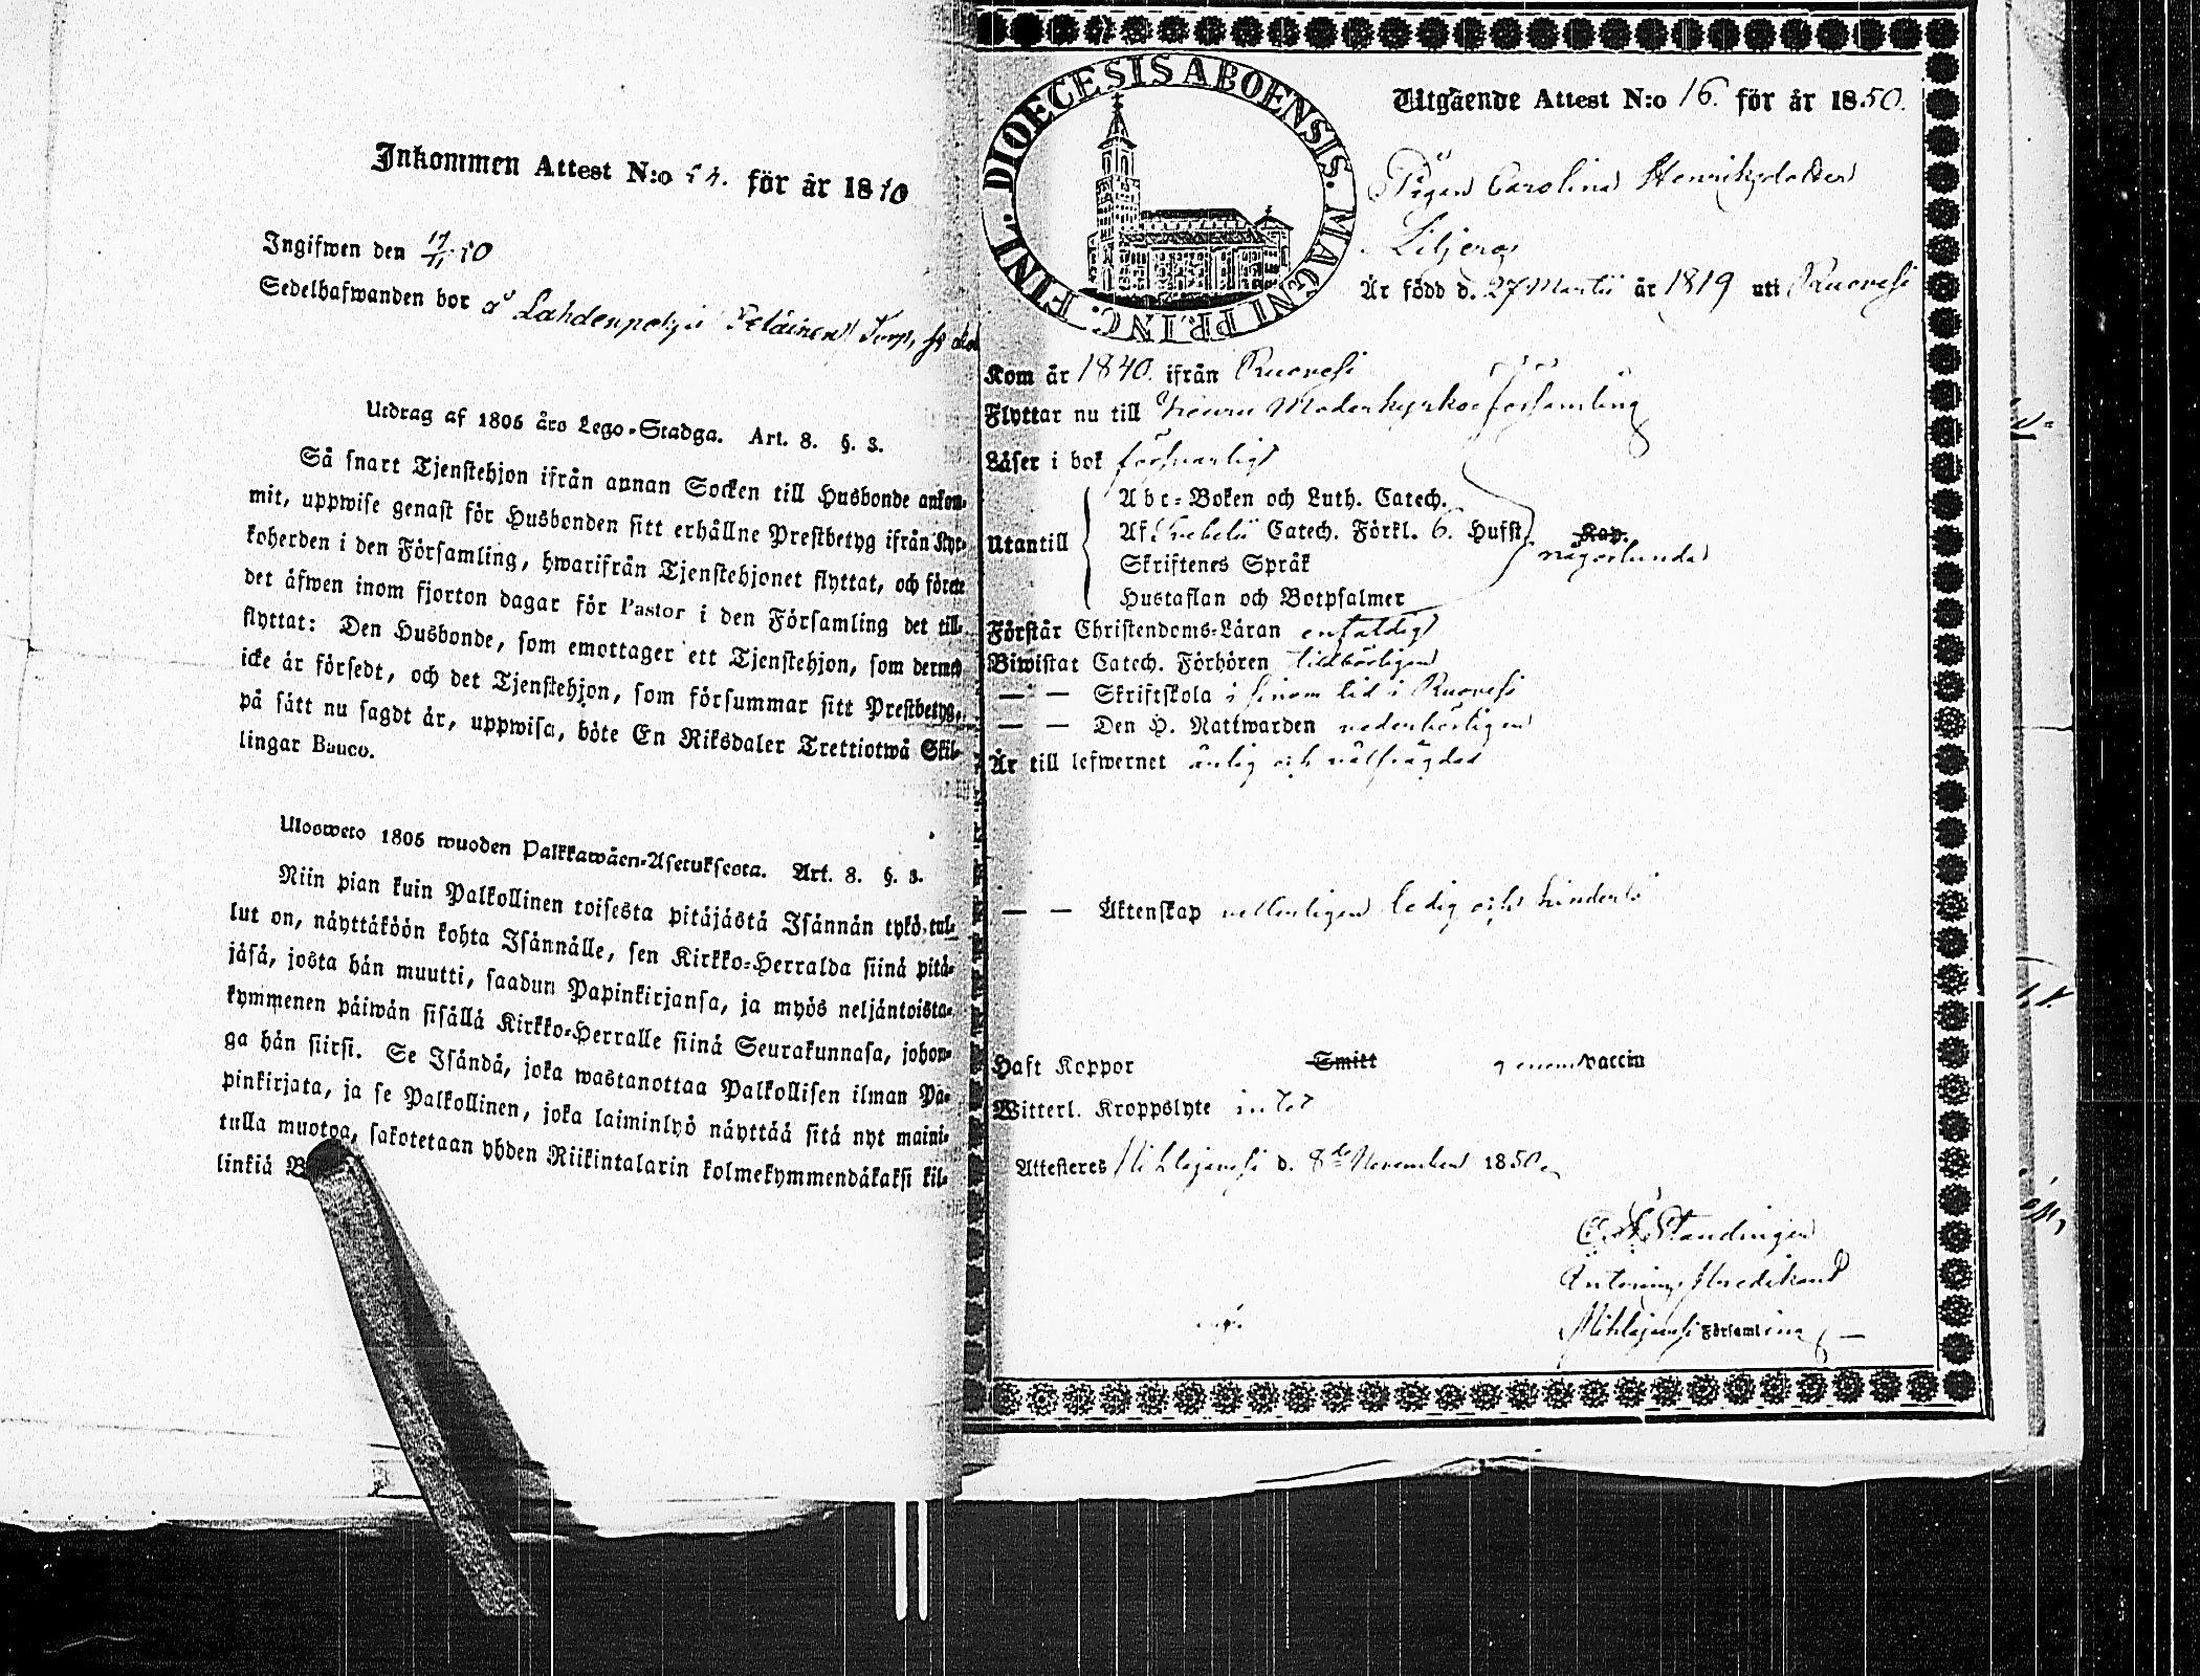 Inkommen Attest N:o 54. för år 1850
Ingifwen den 17/11 50
Sedelhafwanden bor å Lahdenpohja Torp,
Utdrag af 1805 års Lego-Stadga. Art. 8. §. 3.
Så snart Tjenstehjon ifrån annan Socken till Husbonde ankom-
mit, uppwise genast för Husbonden sitt erhållne Prestbetyg ifrån Kyr-
koherden i den Församling, hwarifrån Tjenstehjonet flyttat, och förete
det äfwen inom fjorton dagar för Pastor i den Församling det till-
flyttat: Den Husbonde, som emottager ett Tjenstehjon, som dermed
icke är försedt, och det Tjenstehjon, som försummar sitt Prestbetyg,
på sätt nu sagdt är, uppwisa, böte En Riksdaler Trettiotwå Skil-
lingar Banco.
Ulosweto 1805 wuoden Palkkawäen-Asetuksesta. Art. 8. §. 3.
Niin pian kuin Palkollinen toisesta pitäjästä Isännän tykö tul-
lut on, näyttäköön kohta Isännälle, sen Kirkko-Herralda siinä pitä-
jäsä, josta hän muutti, saadun Papinkirjansa, ja myös neljäntoista-
kymmenen päiwän sisällä Kirkko-Herralle siinä Seurakunnasa, johon-
ga hän siirsi. Se Isändä, joka wastanottaa Palkollisen ilman Pa-
pinkirjata, ja se Palkollinen, joka laiminlyö näyttää sitä nyt maini-
tulla muotoa, sakotetaan yhden Riikintalarin kolmekymmendäkaksi kil-
linkiä
FINL. DIOECESIS ABOENSIS. MAGNI PRINC.
Utgående Attest N:o 16. för år 1850.
Pigan Carolina Henriksdotter
Liljeroos
Är född d. 27 Martii år 1819 uti Ruovesi
Kom år 1840. ifrån Ruovesi
Flyttar nu till Keuru Moderkyrkoförsamling
Läser i bok försvarligt
Utantill
Abc-Boken och Luth. Catech.
Af Svebelii Catech. Förkl. 6. Hufst. Kap.
någorlunda
Skriftenes Språk
Hustaflan och Botpsalmer
Förstår Christendoms-Läran enfaldigt
Biwistat Catech. Förhören tillbörligen
— — Skriftskola i sinom tid i Ruovesi
— — Den H. Nattwarden vederbörligen
Är till lefwernet ärlig och välfrägdad
— — Äktenskap vetterligen ledig och hinderlös
Haft Koppor Smitt genom vaccin
Witterl. Kroppslyte intet
Attesteres Wihlajawesi d. 8de November 1850.
Församling